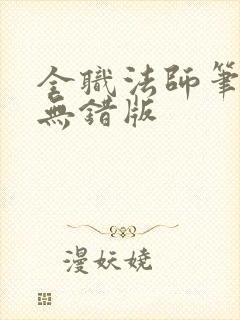 全職法師筆
無錯版
漫妖嬈